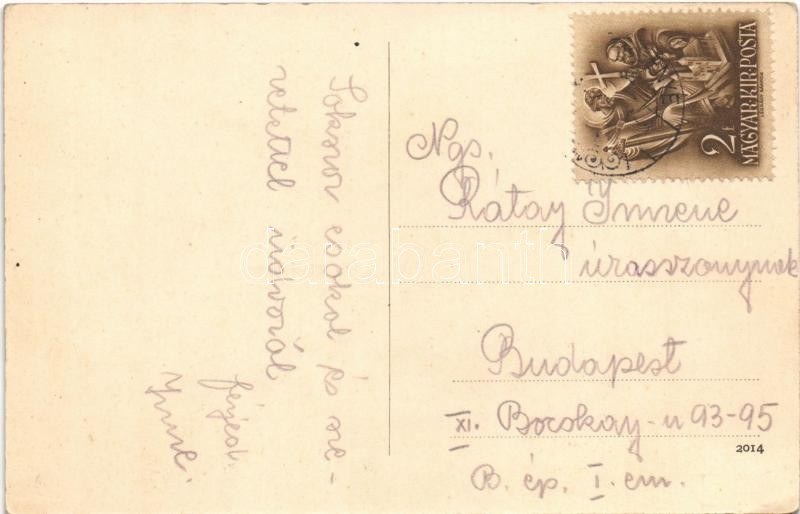 Sokszor csokol és sze-
retettel üdvözöl
férjed.
Imre.
2 f
MAGYAR·KIR·POSTA
Ngs.
Rátay Imrene
úrasszonynak
Budapest
XI. Bocskay-u 93-95
B. ép. I. em.
2014
darabanth